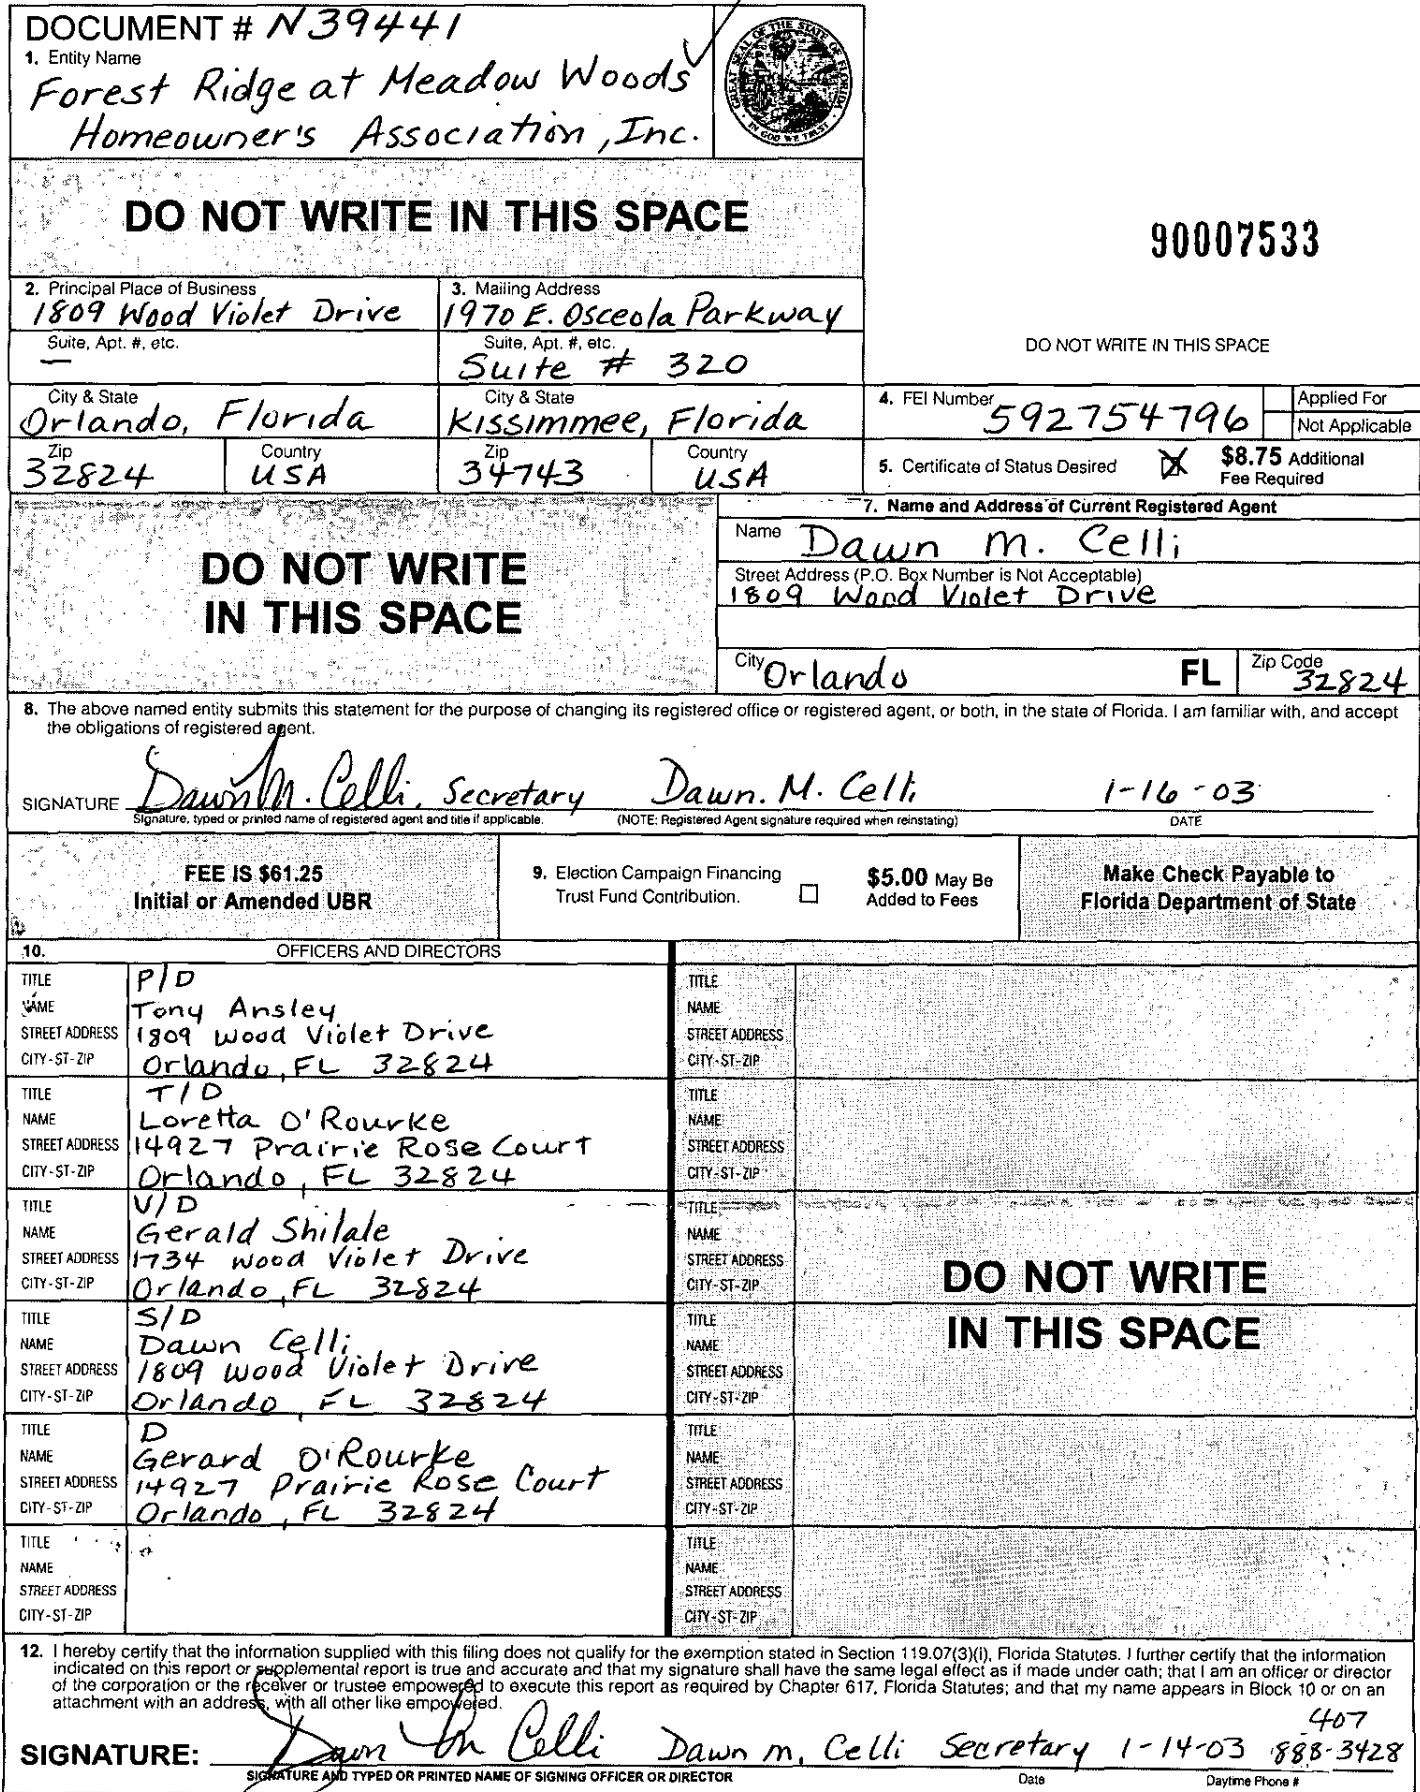 DOCUMENT # N39441
1. Entity Name
Forest Ridge at Meadow Woods
Homeowner's Association, Inc.
GREAT SEAL OF THE STATE OF FLORIDA
IN GOD WE TRUST
DO NOT WRITE IN THIS SPACE
90007533
2. Principal Place of Business
1809 Wood Violet Drive
3. Mailing Address
1970 E. Osceola Parkway
Suite, Apt. #, etc.
—
Suite, Apt. #, etc.
Suite # 320
DO NOT WRITE IN THIS SPACE
City & State
Orlando, Florida
City & State
Kissimmee, Florida
4. FEI Number
592754796
Applied For
Not Applicable
Zip
32824
Country
USA
Zip
34743
Country
USA
5. Certificate of Status Desired X $8.75 Additional
Fee Required
DO NOT WRITE
IN THIS SPACE
7. Name and Address of Current Registered Agent
Name Dawn M. Celli
Street Address (P.O. Box Number is Not Acceptable)
1809 Wood Violet Drive
City Orlando FL Zip Code 32824
8. The above named entity submits this statement for the purpose of changing its registered office or registered agent, or both, in the state of Florida. I am familiar with, and accept
the obligations of registered agent.
SIGNATURE Dawn M. Celli, Secretary Dawn. M. Celli 1-16-03
Signature, typed or printed name of registered agent and title if applicable. (NOTE: Registered Agent signature required when reinstating) DATE
FEE IS $61.25
Initial or Amended UBR
9. Election Campaign Financing
Trust Fund Contribution.
$5.00 May Be
Added to Fees
Make Check Payable to
Florida Department of State
10. OFFICERS AND DIRECTORS
TITLE P/D
NAME Tony Ansley
STREET ADDRESS 1809 Wood Violet Drive
CITY-ST-ZIP Orlando, FL 32824
TITLE T/D
NAME Loretta O'Rourke
STREET ADDRESS 14927 Prairie Rose Court
CITY-ST-ZIP Orlando, FL 32824
TITLE V/D
NAME Gerald Shilale
STREET ADDRESS 1734 Wood Violet Drive
CITY-ST-ZIP Orlando, FL 32824
TITLE S/D
NAME Dawn Celli
STREET ADDRESS 1809 Wood Violet Drive
CITY-ST-ZIP Orlando, FL 32824
TITLE D
NAME Gerard O'Rourke
STREET ADDRESS 14927 Prairie Rose Court
CITY-ST-ZIP Orlando, FL 32824
TITLE
NAME
STREET ADDRESS
CITY-ST-ZIP
TITLE
NAME
STREET ADDRESS
CITY-ST-ZIP
TITLE
NAME
STREET ADDRESS
CITY-ST-ZIP
TITLE
NAME
STREET ADDRESS
CITY-ST-ZIP
TITLE
NAME
STREET ADDRESS
CITY-ST-ZIP
TITLE
NAME
STREET ADDRESS
CITY-ST-ZIP
TITLE
NAME
STREET ADDRESS
CITY-ST-ZIP
DO NOT WRITE
IN THIS SPACE
12. I hereby certify that the information supplied with this filing does not qualify for the exemption stated in Section 119.07(3)(i), Florida Statutes. I further certify that the information
indicated on this report or supplemental report is true and accurate and that my signature shall have the same legal effect as if made under oath; that I am an officer or director
of the corporation or the receiver or trustee empowered to execute this report as required by Chapter 617, Florida Statutes; and that my name appears in Block 10 or on an
attachment with an address, with all other like empowered.
407
SIGNATURE: Dawn M Celli Dawn M. Celli Secretary 1-14-03 888-3428
SIGNATURE AND TYPED OR PRINTED NAME OF SIGNING OFFICER OR DIRECTOR Date Daytime Phone #